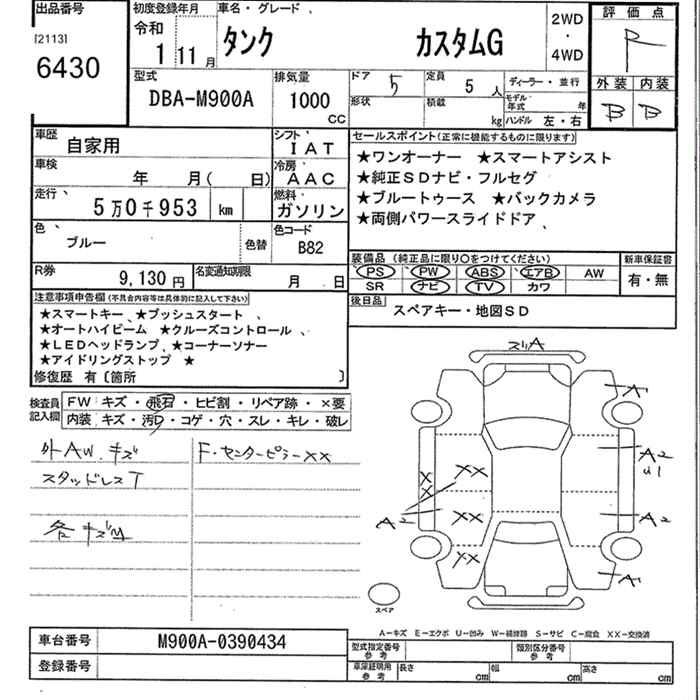 出品番号
[2113]
6430
初度登録年月
令和
1 11月
車名・グレード
タンク カスタムG
2WD
・
4WD
評価点
R
外装 内装
B B
型式
DBA-M900A
排気量
1000
CC
ドア
5
定員
5人
ディーラー・並行
形状
積載
kg
モデル年式 年
ハンドル 左・右
車歴
自家用
シフト
IAT
車検
年 月( 日)
冷房
AAC
走行
5万0千953 km
燃料
ガソリン
色
ブルー
色替
色コード
B82
R券
9,130円
名変通知期限
月 日
セールスポイント(正常に機能するものに限ります)
★ワンオーナー ★スマートアシスト
★純正SDナビ・フルセグ
★ブルートゥース ★バックカメラ
★両側パワースライドドア
装備品 (純正品に限り○をつけてください)
PS PW ABS エアB AW
SR ナビ TV カワ
新車保証書
有・無
後日品
スペアキー・地図SD
注意事項申告欄(不具合内容等は具体的に記入して下さい)
★スマートキー ★プッシュスタート
★オートハイビーム ★クルーズコントロール
★LEDヘッドランプ ★コーナーソナー
★アイドリングストップ ★
修復歴 有〔箇所 〕
検査員記入欄
FW キズ・飛石・ヒビ割・リペア跡・×要
内装 キズ・汚D・コゲ・穴・スレ・キレ・破レ
外AW キズ
スタッドレスT
各キズM
F・センターピラーXX
スリA
A1
A2
U1
A2
A1
XX
XX
XX
X
X
A2
スペア
A−キズ E−エクボ U−凹み W−補修跡 S−サビ C−腐食 XX−交換済
車台番号
M900A-0390434
登録番号
型式指定番号
参考
類別区分番号
参考
車庫証明用
参考
長さ cm
幅 cm
高さ cm